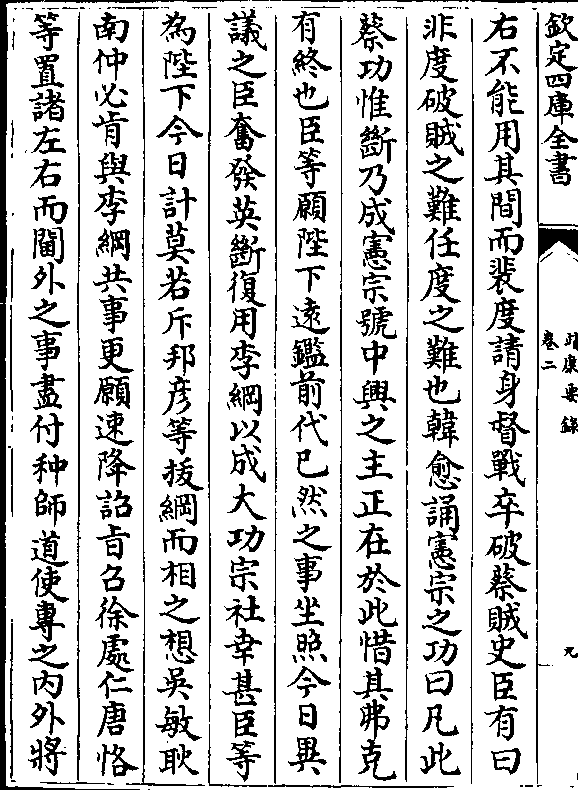 欽定四庫全書
靖康要錄
卷二
九
右不能用其間而裴度請身督戰卒破蔡賊史臣有曰
非度破賊之難任度之難也韓愈誦憲宗之功曰凡此
蔡功惟斷乃成憲宗號中興之主正在於此惜其弗克
有終也臣等願陛下遠鑑前代已然之事坐照今日異
議之臣奮發英斷復用李綱以成大功宗社幸甚臣等
為陛下今日計莫若斥邦彦等拔綱而相之想吳敏耿
南仲必肯與李綱共事更願速降詔旨召徐處仁唐恪
等置諸左右而閫外之事盡付种師道使專之内外將